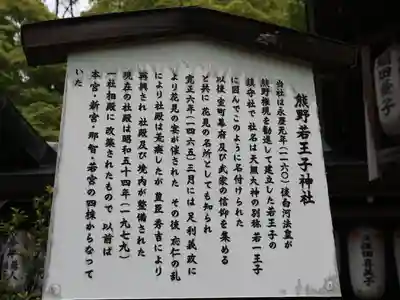 熊野若王子神社
当社は永暦元年(一一六〇)後白河法皇が
熊野権現を勧進して建立した若王子の
鎮守社で 社名は天照大神の別称 若一王子
に因んでこのように名付けられた
以後 室町幕府及び武家の信仰を集める
と共に 花見の名所としても知られ
寛正六年(一四六五)三月には 足利義政に
より花見の宴が催された その後 応仁の乱
により社殿は荒廃したが 豊臣秀吉により
再興され 社殿及び境内が整備された
現在の社殿は 昭和五十四年(一九七九)
一社相殿に改築されたもので 以前は
本宮・新宮・那智・若宮の四棟からなって
いた